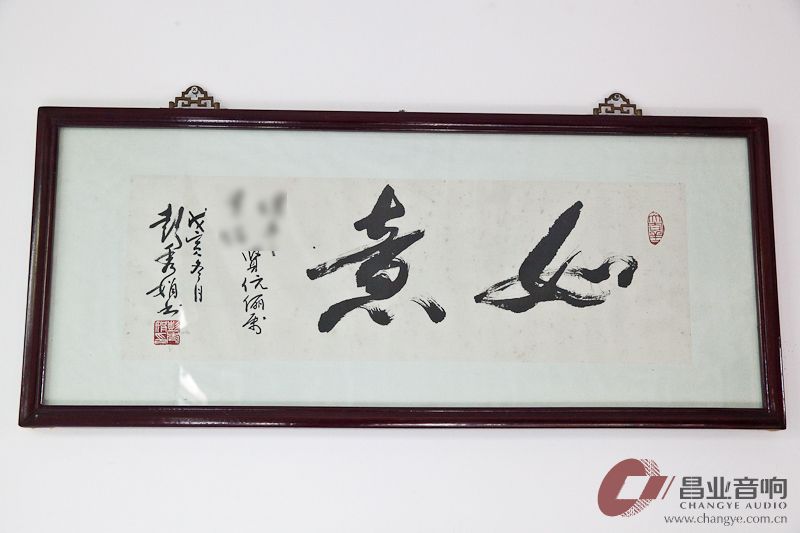 如意
贤伉俪属
冬月
彭秀娟书
昌业音响
CHANGYE AUDIO
www.changye.com.cn